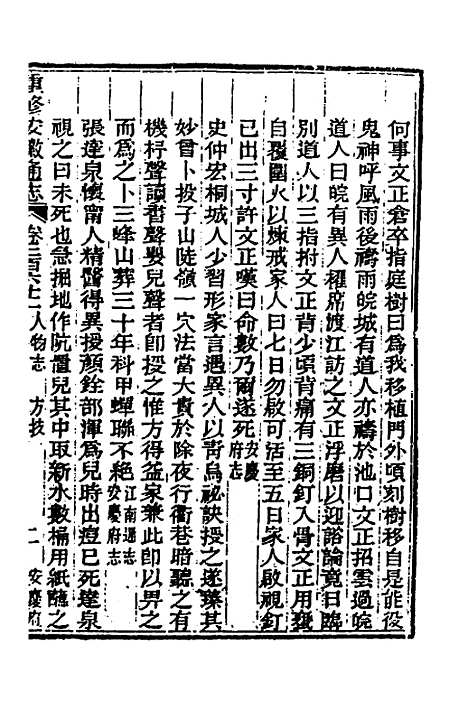 何事文正倉卒指庭樹曰爲我移植門外頃刻樹移自是能役
鬼神呼風雨後禱雨皖城有道人亦禱於池口文正招雲過皖
道人曰皖有異人櫂席渡江訪之文正浮磨以迎談論竟日臨
別道人以三指拊文正背少頃背痛有三銅釘入骨文正用
自覆圍火以煉戒家人曰七日勿啟可活至五日家人啟視釘
已出三寸許文正嘆曰命數乃爾遂死安慶府志
史仲宏桐城人少習形家言遇異人以靑烏祕訣授之遂臻其
妙曾卜投子山陡嶺一穴法當大貴於除夜行衢巷暗聽之有
機杼聲讀書聲嬰兒聲者卽授之惟方得益家兼此卽以畀之
而爲之卜三峰山葬三十年科甲蟬聯不絕江南通志安慶府志
張達泉懷甯人精醫得異授顏銓部渾爲兒時出痘已死達泉
視之曰未死也急掘地作阬置兒其中取新水數桶用紙蘸之
重修安徽通志 卷二百六十二 人物志 方技 二 安慶府